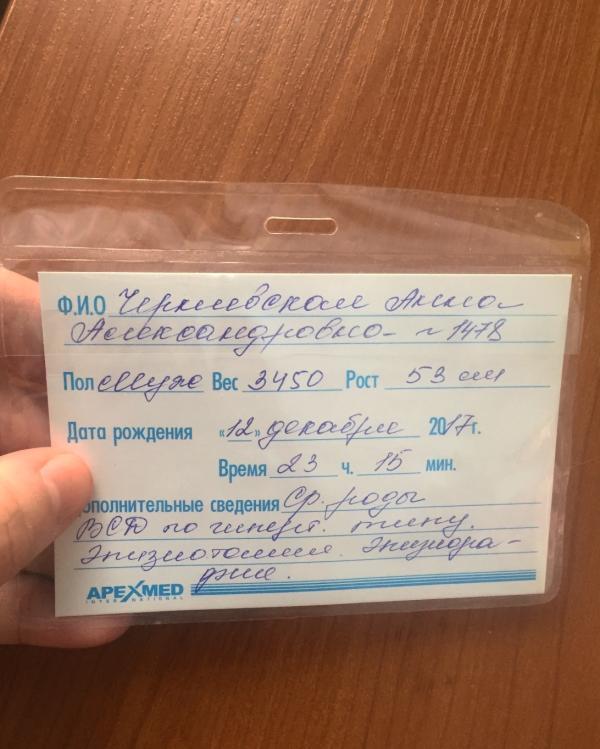 Ф.И.О Чернявская Анна
Александровна ~ 1478
Пол Муж Вес 3450 Рост 53 см
Дата рождения «12» декабря 2017г.
Время 23 ч. 15 мин.
ополнительные сведения Ср. роды
ВСД по гиперт. типу.
Эпизиотомия. Эпизиора-
фия.
APEXMED
INTERNATIONAL